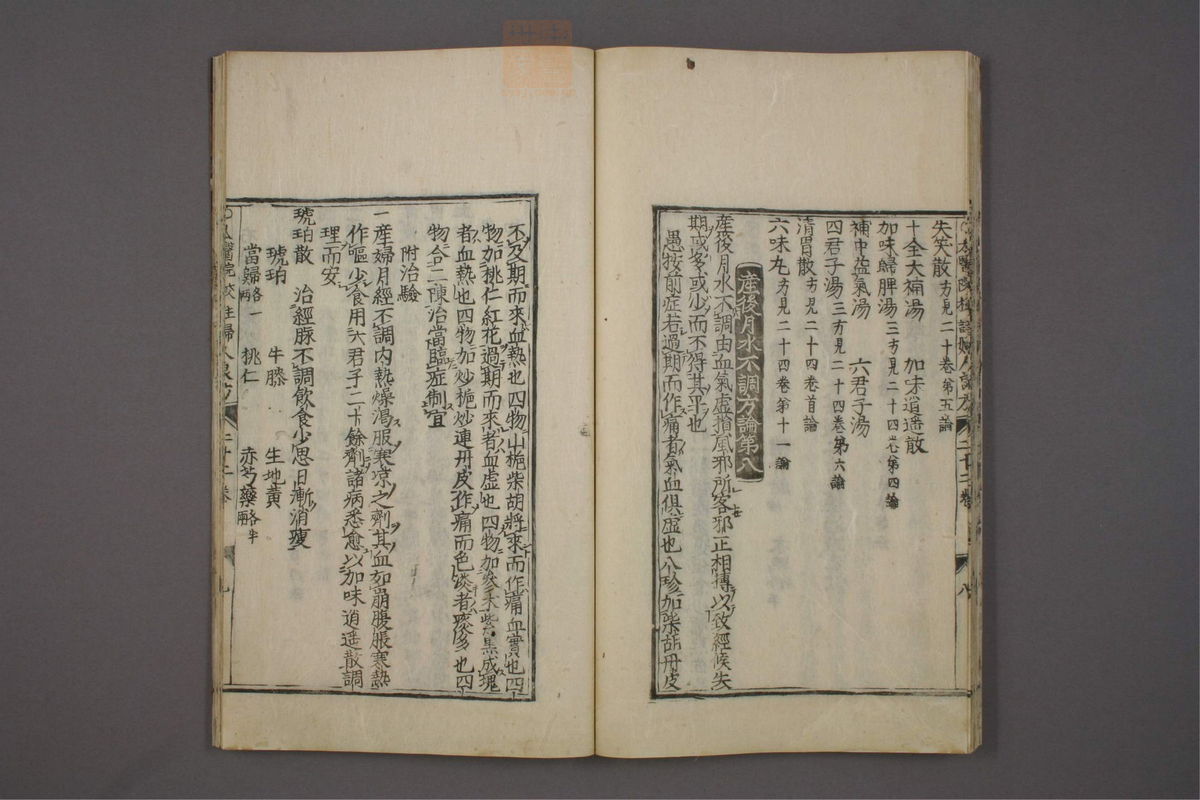 失笑散方見二十卷第五論
十全大補湯 加味逍遙散
加味歸脾湯三方見二十四卷第四論
補中益氣湯 六君子湯
四君子湯三方見二十四卷第六論
清胃散方見二十四卷首論
六味丸方見二十四卷第十一論
產後月水不調方論第八
產後月水不調由血氣虛損風邪所客邪正相搏以致經候失
期或多或少而不得其平也
愚按前症若過期而作痛者氣血俱虛也八珍加柴胡丹皮
二十二卷
八
不及期而來血熱也四物山梔柴胡將來而作痛血實也四
物加桃仁紅花過期而來者血虛也四物加參朮紫黑成塊
者血熱也四物加炒梔炒連丹皮作痛而色淡者痰多也四
物合二陳治當臨症制宜
附治驗
一產婦月經不調內熱燥渴服寒凉之劑其血如崩腹脹寒熱
作嘔少食用六君子二十餘劑諸病悉愈以加味逍遙散調
理而安
琥珀散 治經脉不調飲食少思日漸消瘦
琥珀 牛膝 生地黃
當歸各一兩 桃仁 赤芍藥各半兩
太醫院校註婦人良方 二十二卷 九